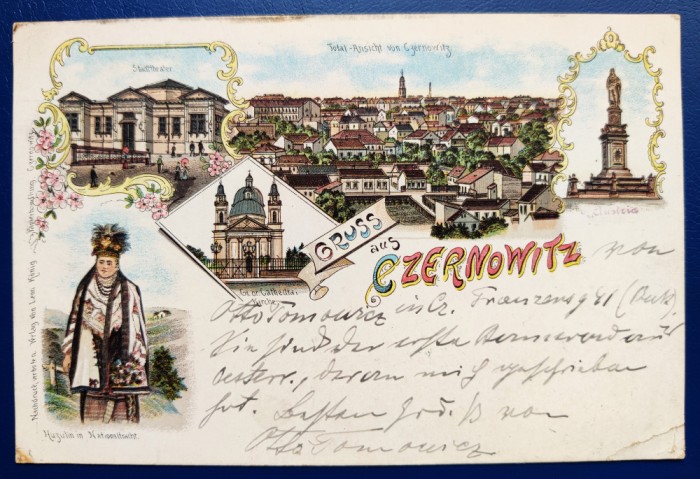 Stadttheater.
Total-Ansicht von Czernowitz.
Gr. or. Cathedral
Kirche.
GRUSS
aus
CZERNOWITZ
Huzulin in Nationaltracht.
Nachdruck verboten. Verlag von Leon König, Papierhandlung, Czernowitz
von
Otto Tomowicz in Cz. Franzensg 41 (Buk).
Sie sind der erste
oesterr., der an mich geschrieben
hat. Besten Gruß von
Otto Tomowicz